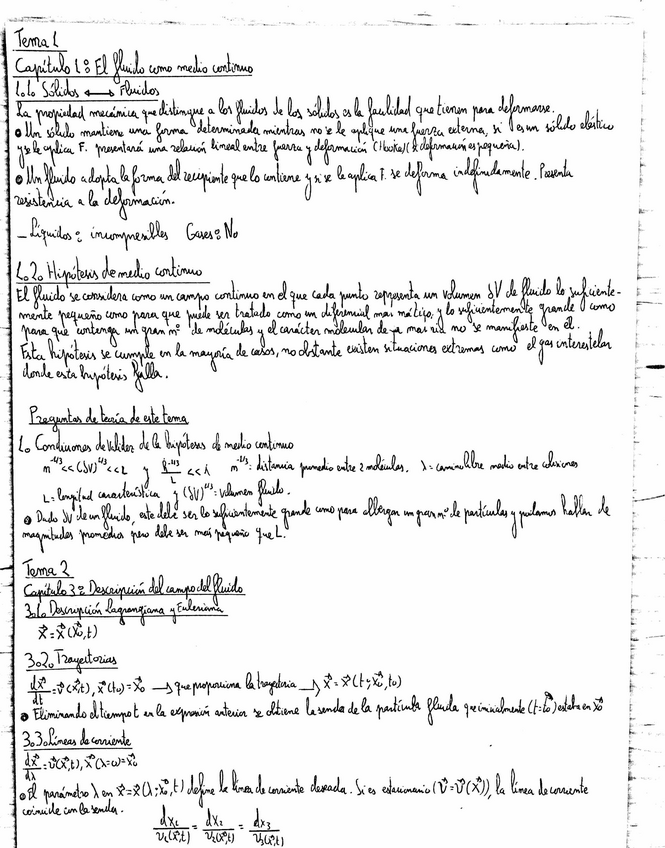 Tema 1
Capítulo 1: El fluido como medio continuo
1.1. Sólidos ⟷ Fluidos
La propiedad mecánica que distingue a los fluidos de los sólidos es la facilidad que tienen para deformarse.
• Un sólido mantiene una forma determinada mientras no se le aplique una fuerza externa, si es un sólido elástico
y se le aplica F. presentará una relación lineal entre fuerza y deformación (Hooke) (si deformación es pequeña).
• Un fluido adopta la forma del recipiente que lo contiene y si se le aplica F. se deforma indefinidamente. Presenta
resistencia a la deformación.
- Líquidos: incompresibles Gases: No
1.2. Hipótesis de medio continuo
El fluido se considera como un campo continuo en el que cada punto representa un volumen δV de fluido lo suficiente-
mente pequeño como para que puede ser tratado como un diferencial matemático, y lo suficientemente grande como
para que contenga un gran nº de moléculas y el carácter molecular de la materia no se manifieste en él.
Esta hipótesis se cumple en la mayoría de casos, no obstante existen situaciones extremas como el gas interestelar
donde esta hipótesis falla.
Preguntas de teoría de este tema
1. Condiciones de validez de la hipótesis de medio continuo
n^-1/3 << (δV)^1/3 << L y << λ n^-1/3: distancia promedio entre 2 moléculas. λ = camino libre medio entre colisiones
L = longitud característica y (δV)^1/3: volumen fluido.
• Dado δV de un fluido, este debe ser lo suficientemente grande como para albergar un gran nº de partículas y podamos hablar de
magnitudes promedios pero debe ser más pequeño que L.
Tema 2
Capítulo 3: Descripción del campo del fluido
3.1. Descripción Lagrangiana y Euleriana
x⃗ = x⃗(x⃗₀,t)
3.2. Trayectorias
dx⃗/dt = v⃗(x⃗,t), x⃗(t₀) = x⃗₀ → que proporciona la trayectoria → x⃗ = x⃗(t; x⃗₀, t₀)
• Eliminando el tiempo t en la expresión anterior se obtiene la senda de la partícula fluida que inicialmente (t=t₀) estaba en x⃗₀
3.3. Líneas de corriente
dx⃗/dλ = v⃗(x⃗,t), x⃗(λ=0) = x⃗₀
• El parámetro λ en x⃗ = x⃗(λ; x⃗₀, t) define la línea de corriente deseada. Si es estacionario (v⃗ = v⃗(x⃗)), la línea de corriente
coincide con la senda.
dx₁/v₁(x⃗,t) = dx₂/v₂(x⃗,t) = dx₃/v₃(x⃗,t)